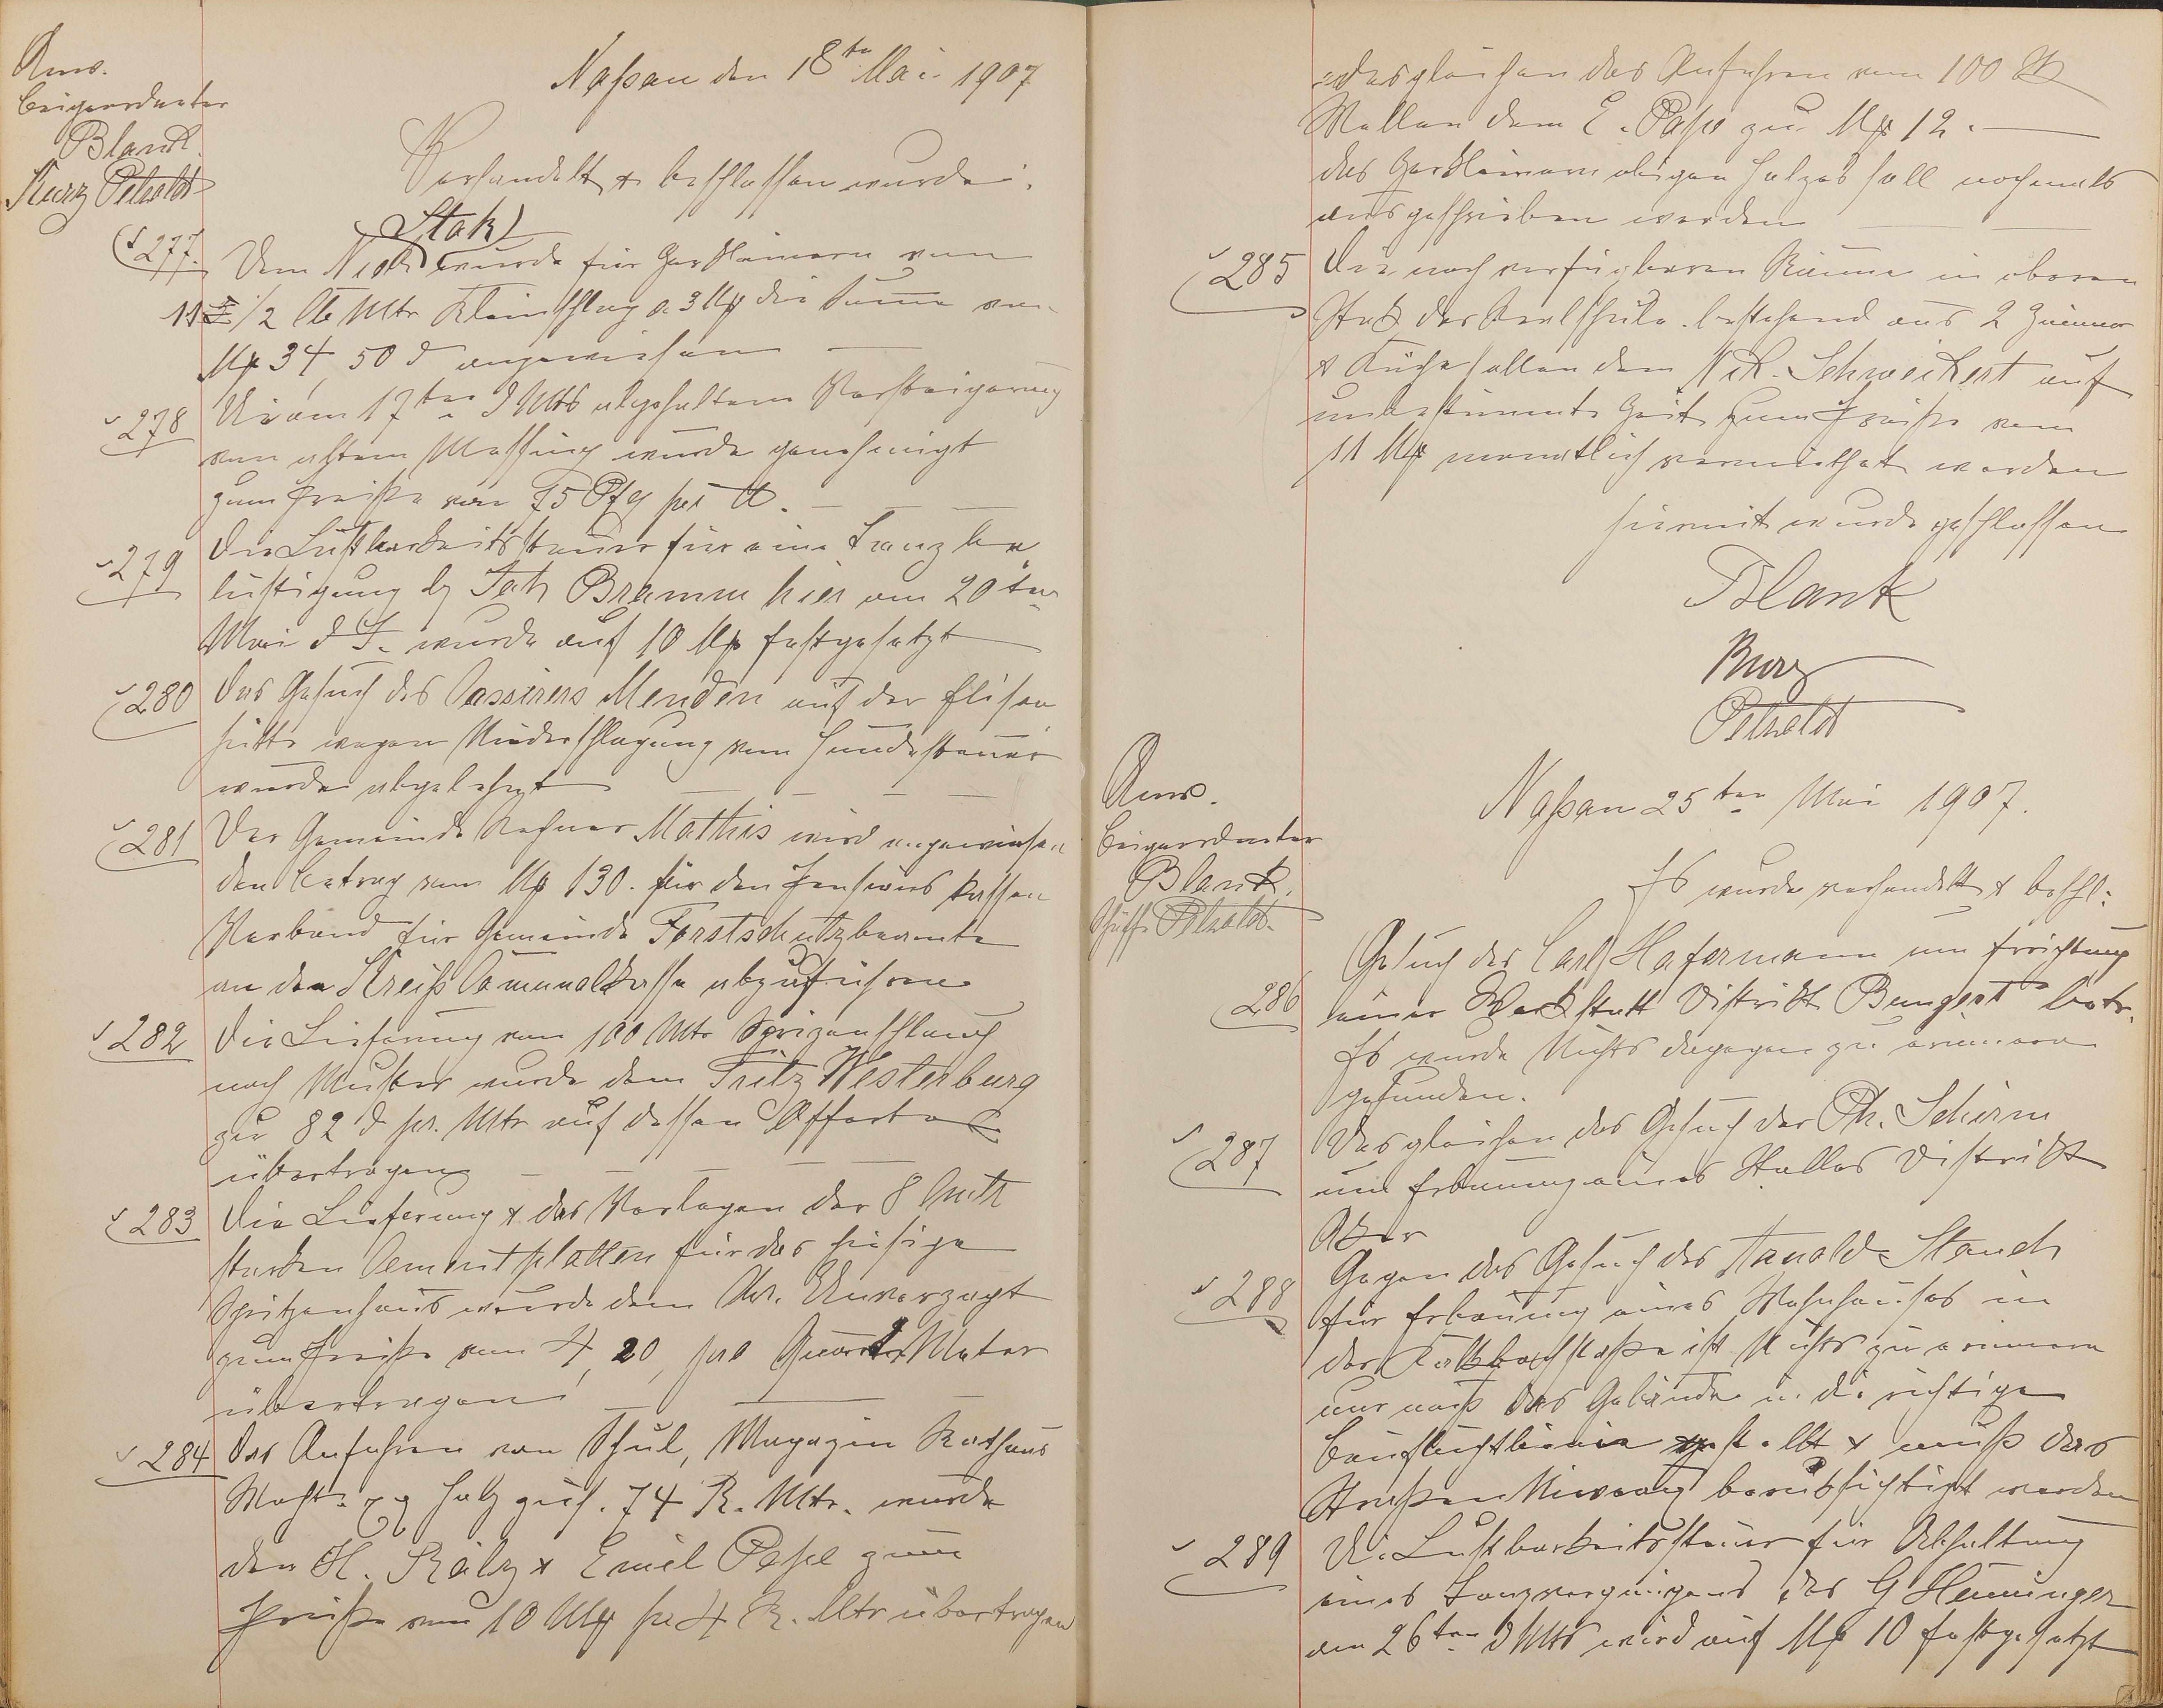 Anw.
Beigeordneter
Blank.
Kurz Petholdt
Naßau den 18ten Mai 1907
Verhandelt & beschlossen wurde:
(Stak)
§ 277. Dem wurde für Zerkleinern von
11 1/2 Cb Mtr Kleinschlag a 3 Mk die Summe von
Mk 34,50 ₰ angewiesen
§ 278 Die am 17ten d Mts abgehaltene Versteigerung
von altem Messing wurde genehmigt
zum Preiße von 75 Pfg per ℔.
§ 279 Die Lustbarkeitssteuer für eine Tanzbe
lustigung by Jak Bramm hier am 20ten
Mai d J. wurde auf 10 Mk festgesetzt
§ 280 Das Gesuch des Cassirers Menden auf der Elisen
hütte wegen Niederschlagung von Hundesteuer
wurde abgelehnt
§ 281 Der Gemeinde Rechner Mathis wird angewiesen
den Betrag von Mk 130. für den Pensions kassen
Verband für Gemeinde Forstschutzbeamte
an den Kreiß Comunalkasse abzuführen
§ 282 Die Lieferung von 100 Mtr Sprizenschlauch
nach Muster wurde dem Fritz Westerburg
zu 82 ₰ pr. Mtr auf dessen Offerte
übertragen
§ 283 Die Lieferung & das Verlegen der 8 Cmtr
starken Cementplatten für das hiesige
Spritzenhaus wurde dem Chr. Unverzagt
zum Preiße von 4,20, pro Quadrat Meter
übertragen
§ 284 Das Anfahren von Schul, Magazin Rathaus
Wacht. pp Holz zus. 74 R. Mtr. wurde
den H. Kälz & Emil Pape zum
Preiße von 10 Mk pr 4 R. Mtr übertragen
desgleichen das Anfahren von 100 St
Wellen dem E. Pape zu Mk 12.
das Zerkleinern obigen Holzes soll nochmals
ausgeschrieben werden
§ 285 Die noch verfügbaren Räume in oberen
Stock der Realschule. bestehend aus 2 Zimmer
& Küche sollen dem Nik. Schweikert auf
unbestimmte Zeit zum Preiße von
11 Mk monatlich vermiethet werden
hiermit wurde geschlossen
Blank
Kurz
Petholdt
Anw.
Beigeordneter
Blank.
Schöffe Petholdt.
Naßau 25ten Mai 1907.
Es wurde verhandelt & beschl:
§ 286 Gesuch des Carl Hafermann um Errichtung
einer Werkstatt Distrikt Bungert betr.
Es wurde Nichts dagegen zu erinnern
gefunden.
§ 287 Desgleichen das Gesuch der Ph. Schirm
um Erbauung eines Stalles Distrikt
Aker
§ 288 Gegen das Gesuch des Arnold Stauch
für Erbauung eines Wohnhauses in
der Kaltbachstraße ist Nichts zu erinnern
nur muß das Gebäude in die richtige
Baufluchtlinie gestellt & muß das
Straßen Niveau berücksichtigt werden
§ 289 Die Lustbarkeitssteuer für Abhaltung
eines Tanzvergnügens des G Heuninger
am 26ten d Mts wird auf Mk 10 festgesetzt